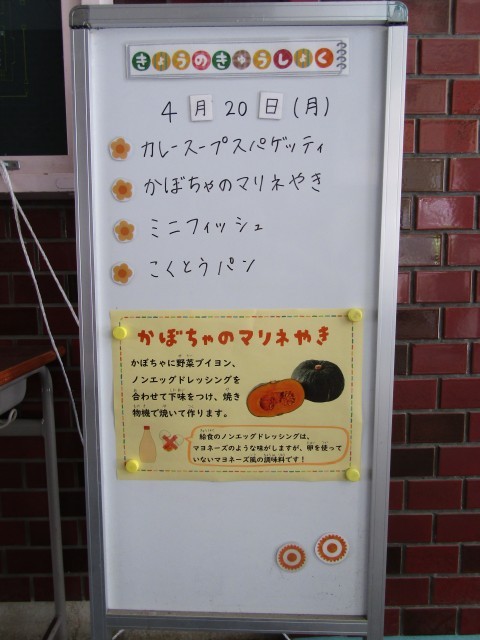 きょうのきゅうしょく
4月20日(月)
カレースープスパゲッティ
かぼちゃのマリネやき
ミニフィッシュ
こくとうパン
かぼちゃのマリネやき
かぼちゃに野菜ブイヨン、
ノンエッグドレッシングを
合わせて下味をつけ、焼き
物機で焼いて作ります。
給食のノンエッグドレッシングは、
マヨネーズのような味がしますが、卵を使って
いないマヨネーズ風の調味料です！